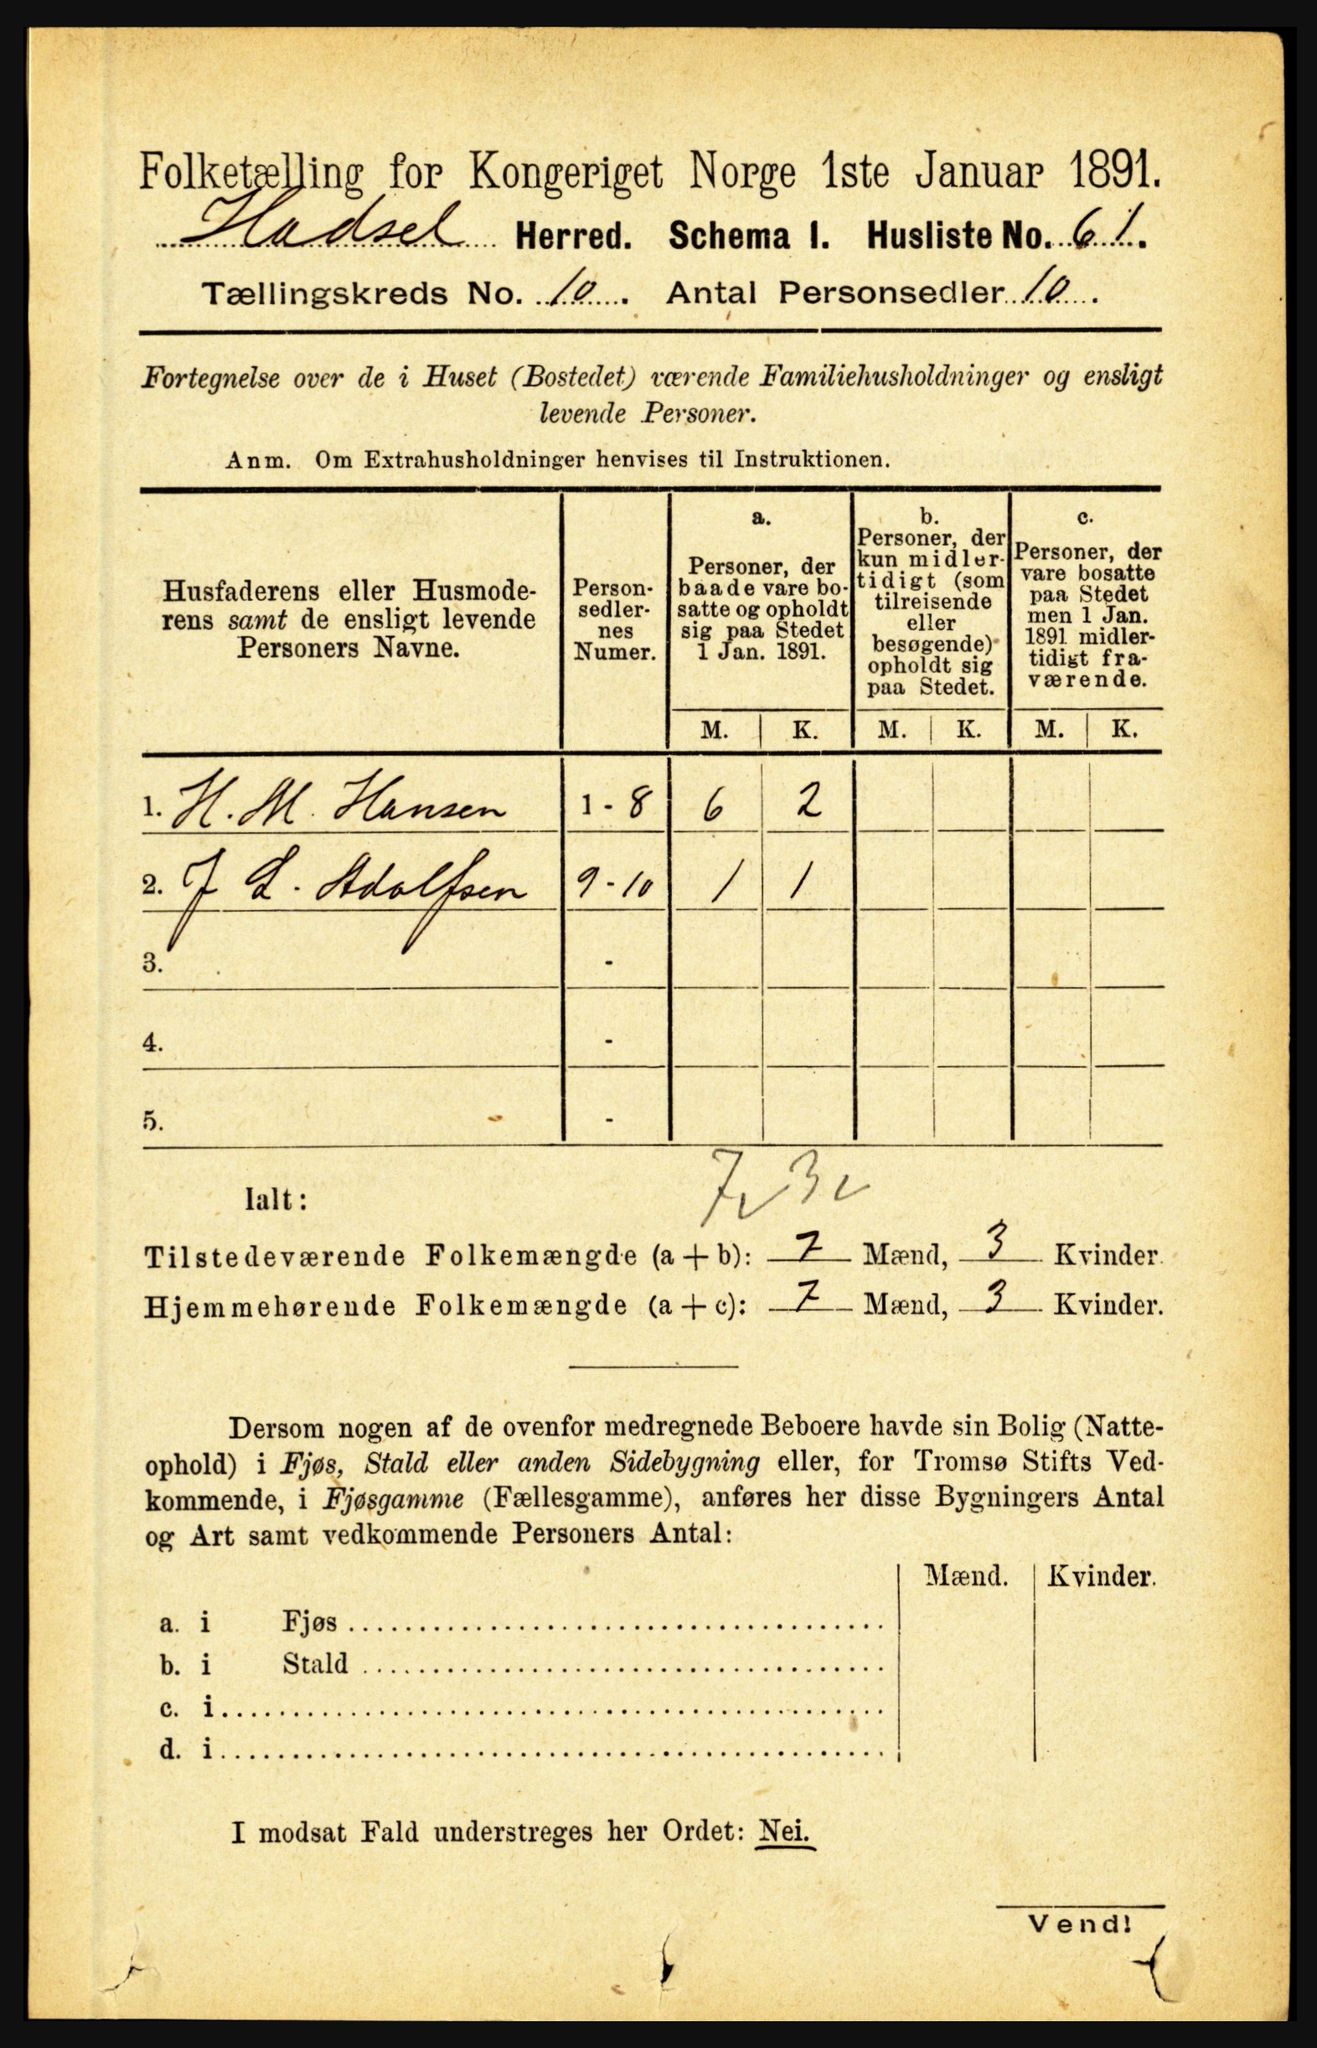 Folketælling for Kongeriget Norge 1ste Januar 1891.
Hadsel Herred. Schema I. Husliste No. 61.
Tællingskreds No. 10. Antal Personsedler 10.
Fortegnelse over de i Huset (Bostedet) værende Familiehusholdninger og ensligt
levende Personer.
Anm. Om Extrahusholdninger henvises til Instruktionen.
Husfaderens eller Husmode-
rens samt de ensligt levende
Personers Navne.
Person-
sedler-
nes
Numer.
a.
Personer, der
baade vare bo-
satte og opholdt
sig paa Stedet
1 Jan. 1891.
b.
Personer, der
kun midler-
tidigt (som
tilreisende
eller
besøgende)
opholdt sig
paa Stedet.
c.
Personer, der
vare bosatte
paa Stedet
men 1 Jan.
1891 midler-
tidigt fra-
værende.
M. K. M. K. M. K.
1. H. M. Hansen 1 - 8 6 2
2. J L. Adolfsen 9 - 10 1 1
3. -
4. -
5. -
7 3
Ialt:
Tilstedeværende Folkemængde (a + b): 7 Mænd, 3 Kvinder.
Hjemmehørende Folkemængde (a + c): 7 Mænd, 3 Kvinder.
Dersom nogen af de ovenfor medregnede Beboere havde sin Bolig (Natte-
ophold) i Fjøs, Stald eller anden Sidebygning eller, for Tromsø Stifts Ved-
kommende, i Fjøsgamme (Fællesgamme), anføres her disse Bygningers Antal
og Art samt vedkommende Personers Antal:
Mænd. Kvinder.
a. i Fjøs
b. i Stald
c. i
d. i
I modsat Fald understreges her Ordet: Nei.
Vend!